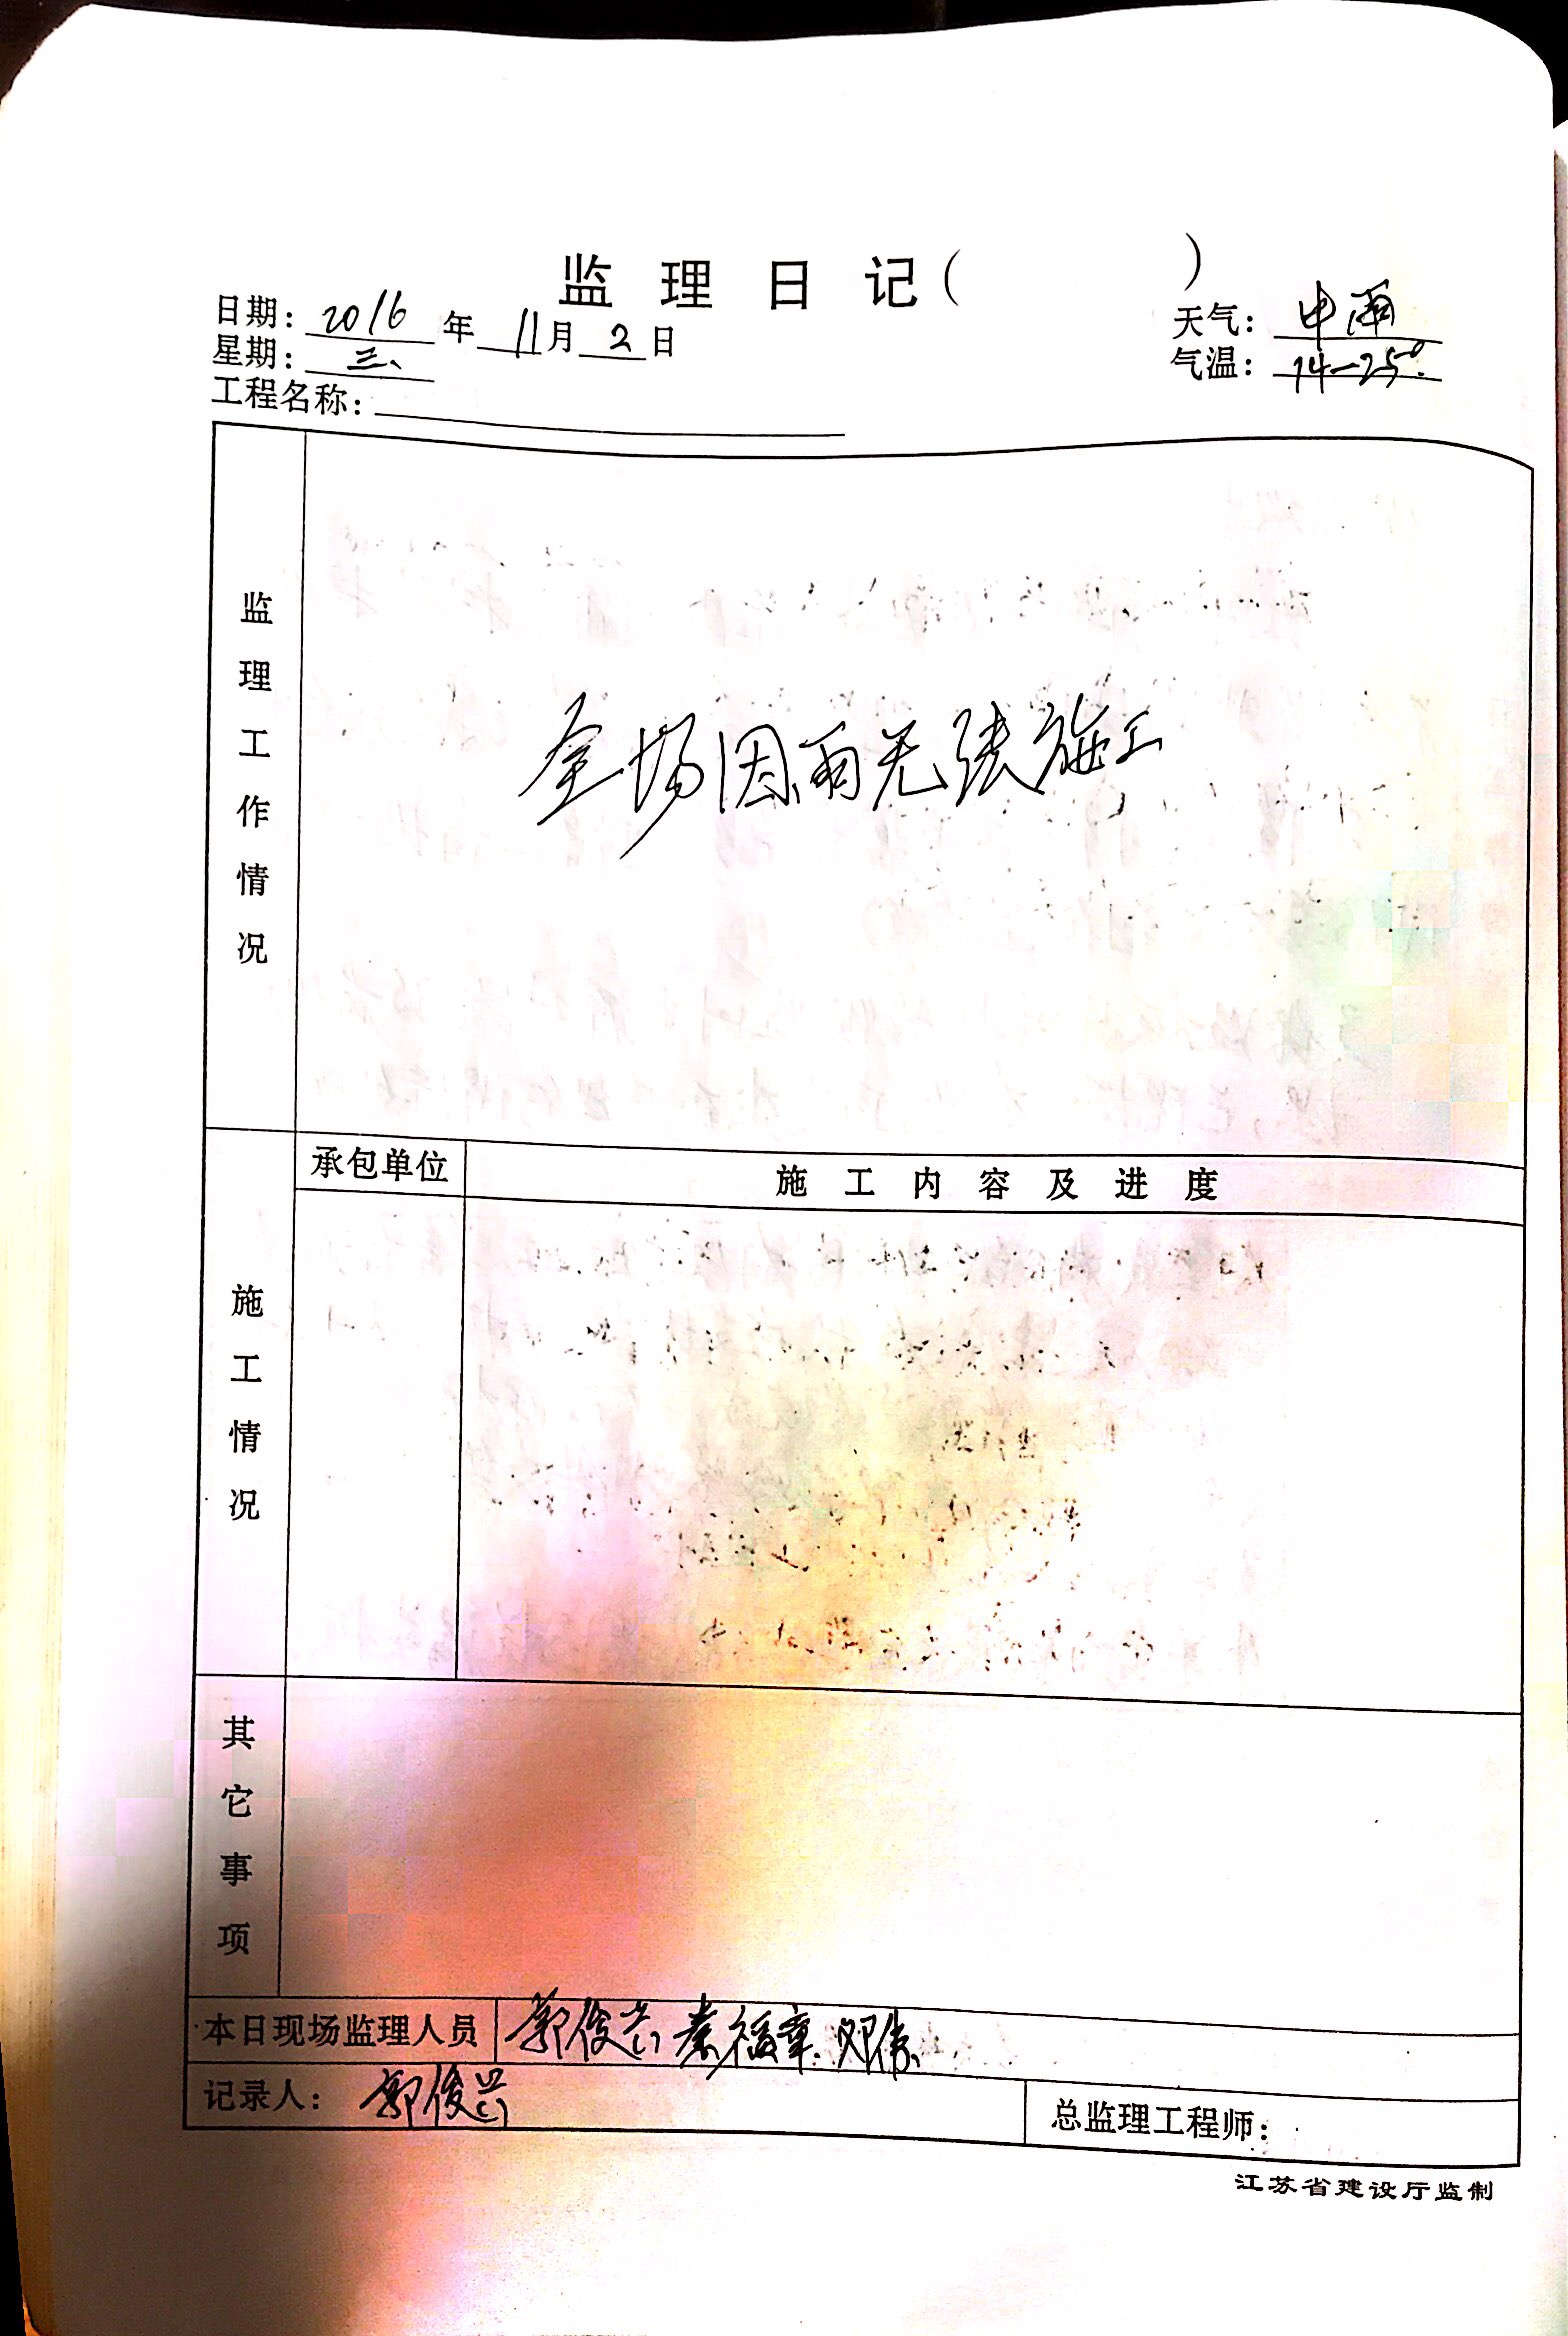 监理日记（ ）
日期：2016年11月2日
天气：中雨
星期：三、
气温：14—25°
工程名称：
监理工作情况
全场因雨无法施工
承包单位
施工内容及进度
施工情况
其它事项
本日现场监理人员 郭俊兴 秦福章 邓伟
记录人：郭俊兴
总监理工程师：
江苏省建设厅监制